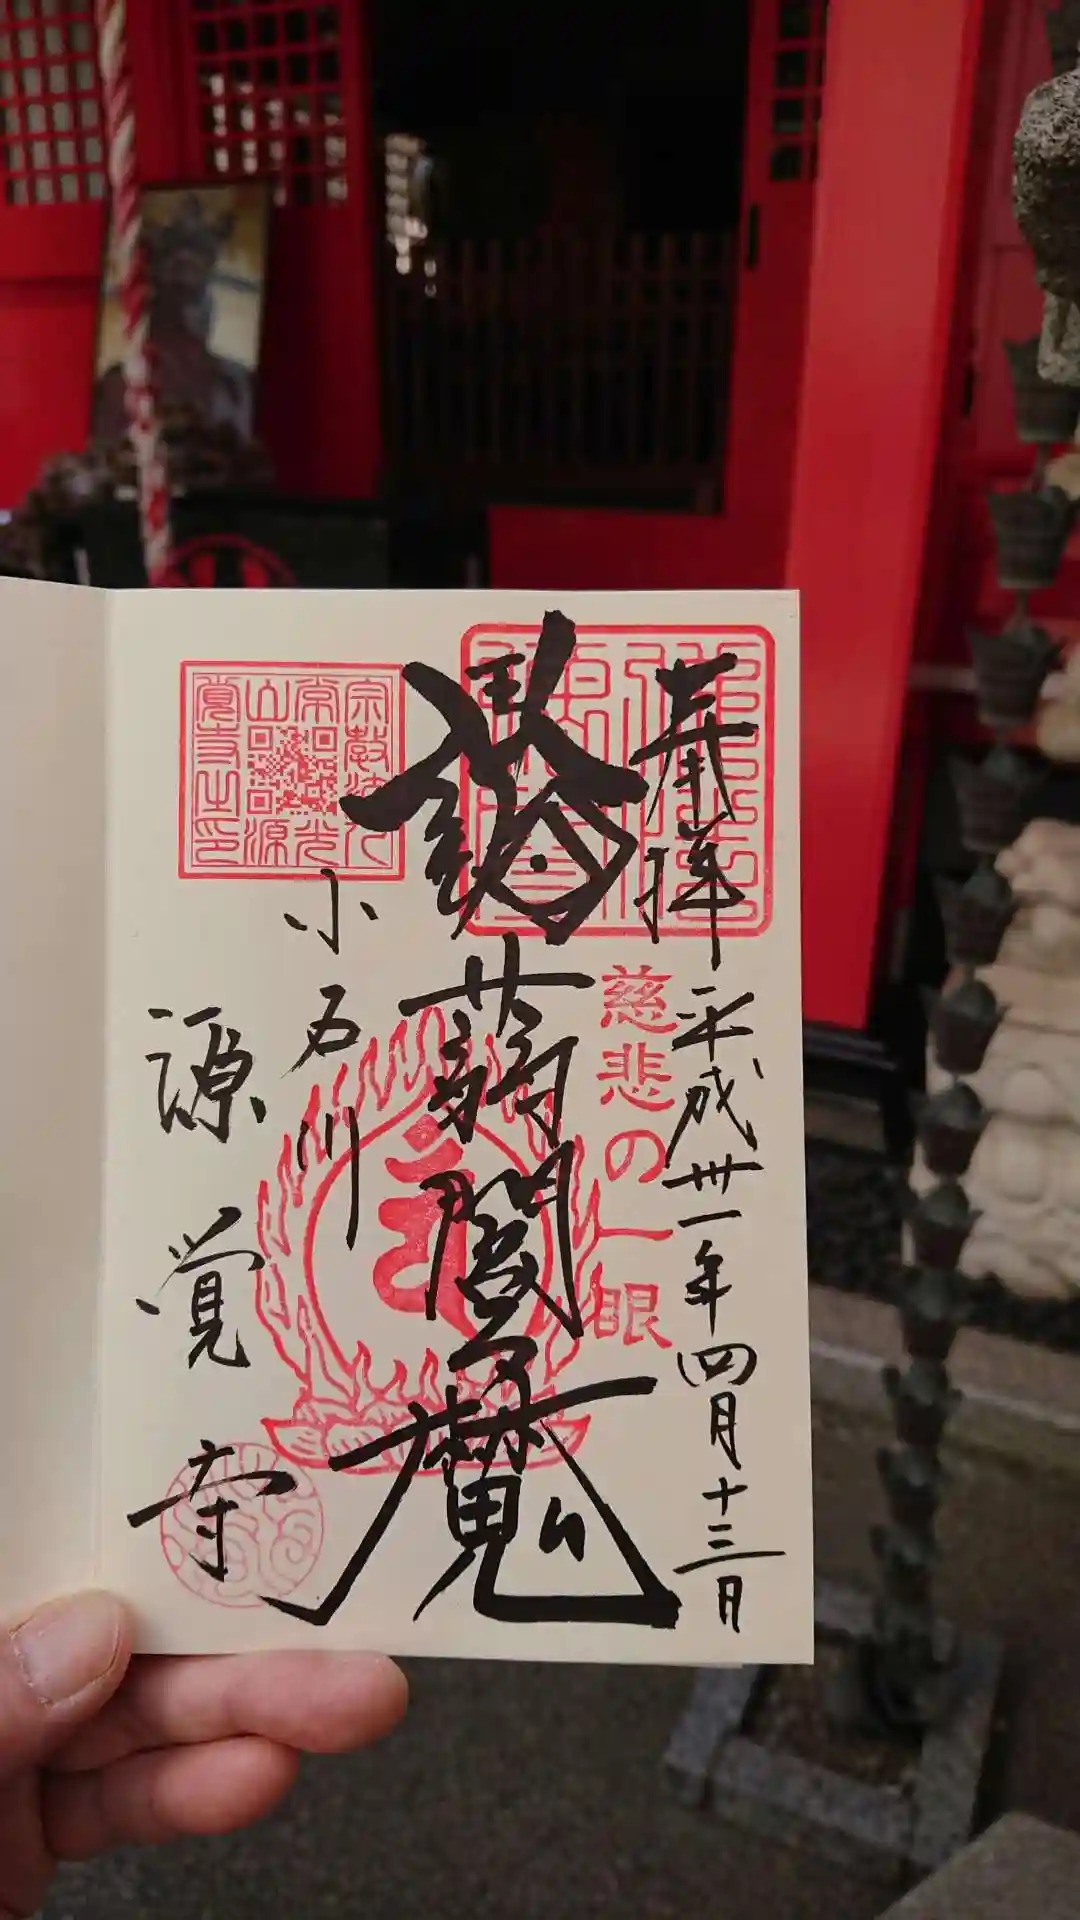 奉拝 平成卅一年四月十三日
慈悲の一眼
蒟蒻閻魔
小石川
源覚寺
宗教法人
常光
山源
覚寺之印